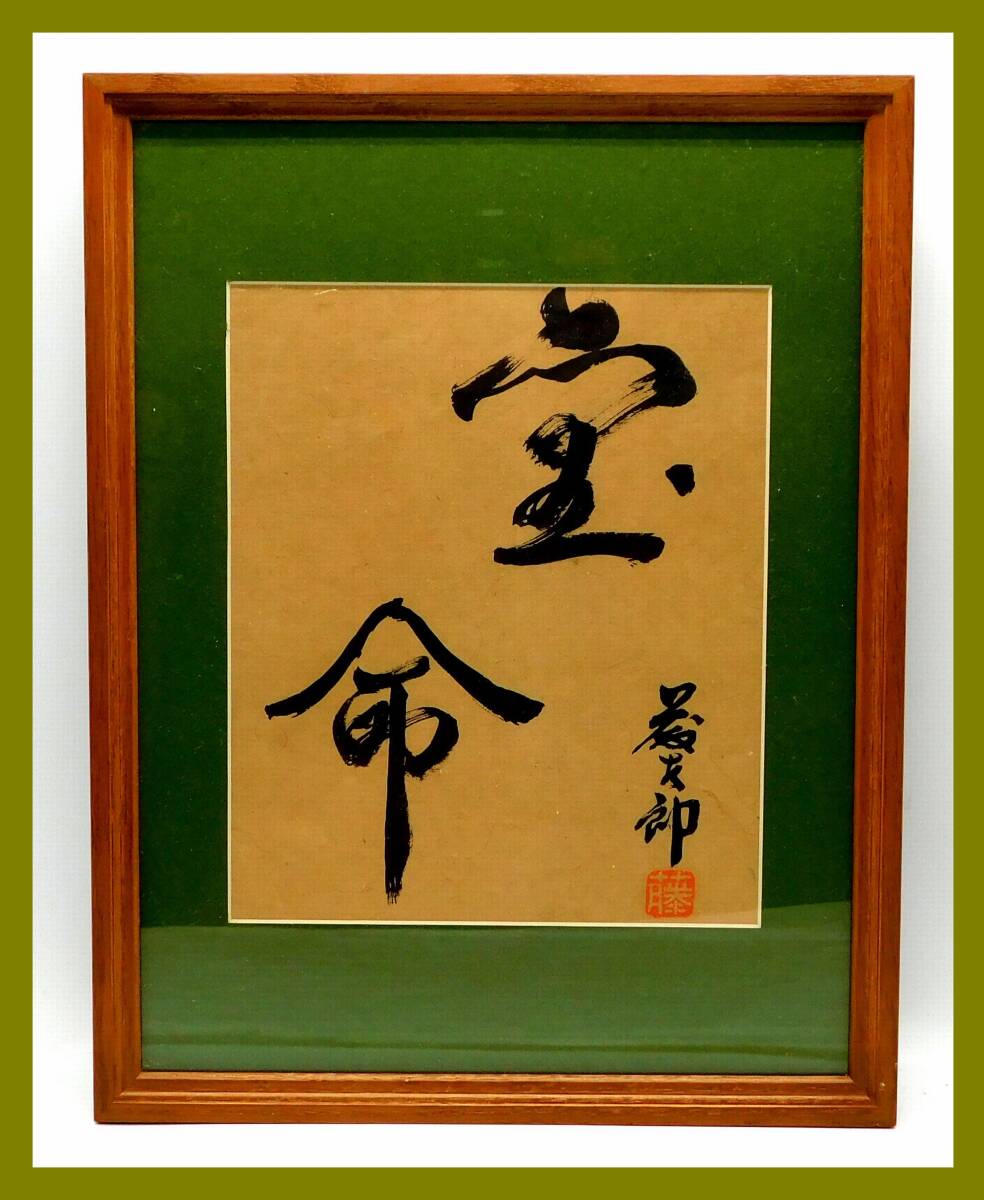 宝
命
太郎
藤